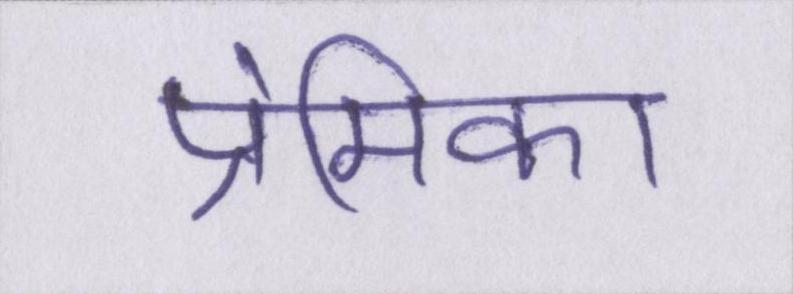 प्रंमिका